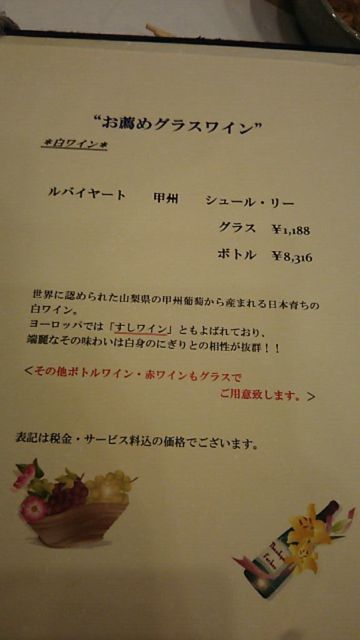 “お薦めグラスワイン”
*白ワイン*
ルバイヤート 甲州 シュール・リー
グラス ￥1,188
ボトル ￥8,316
世界に認められた山梨県の甲州葡萄から産まれる日本育ちの
白ワイン。
ヨーロッパでは「すしワイン」ともよばれており、
端麗なその味わいは白身のにぎりとの相性が抜群！！
＜その他ボトルワイン・赤ワインもグラスで
ご用意致します。＞
表記は税金・サービス料込の価格でございます。